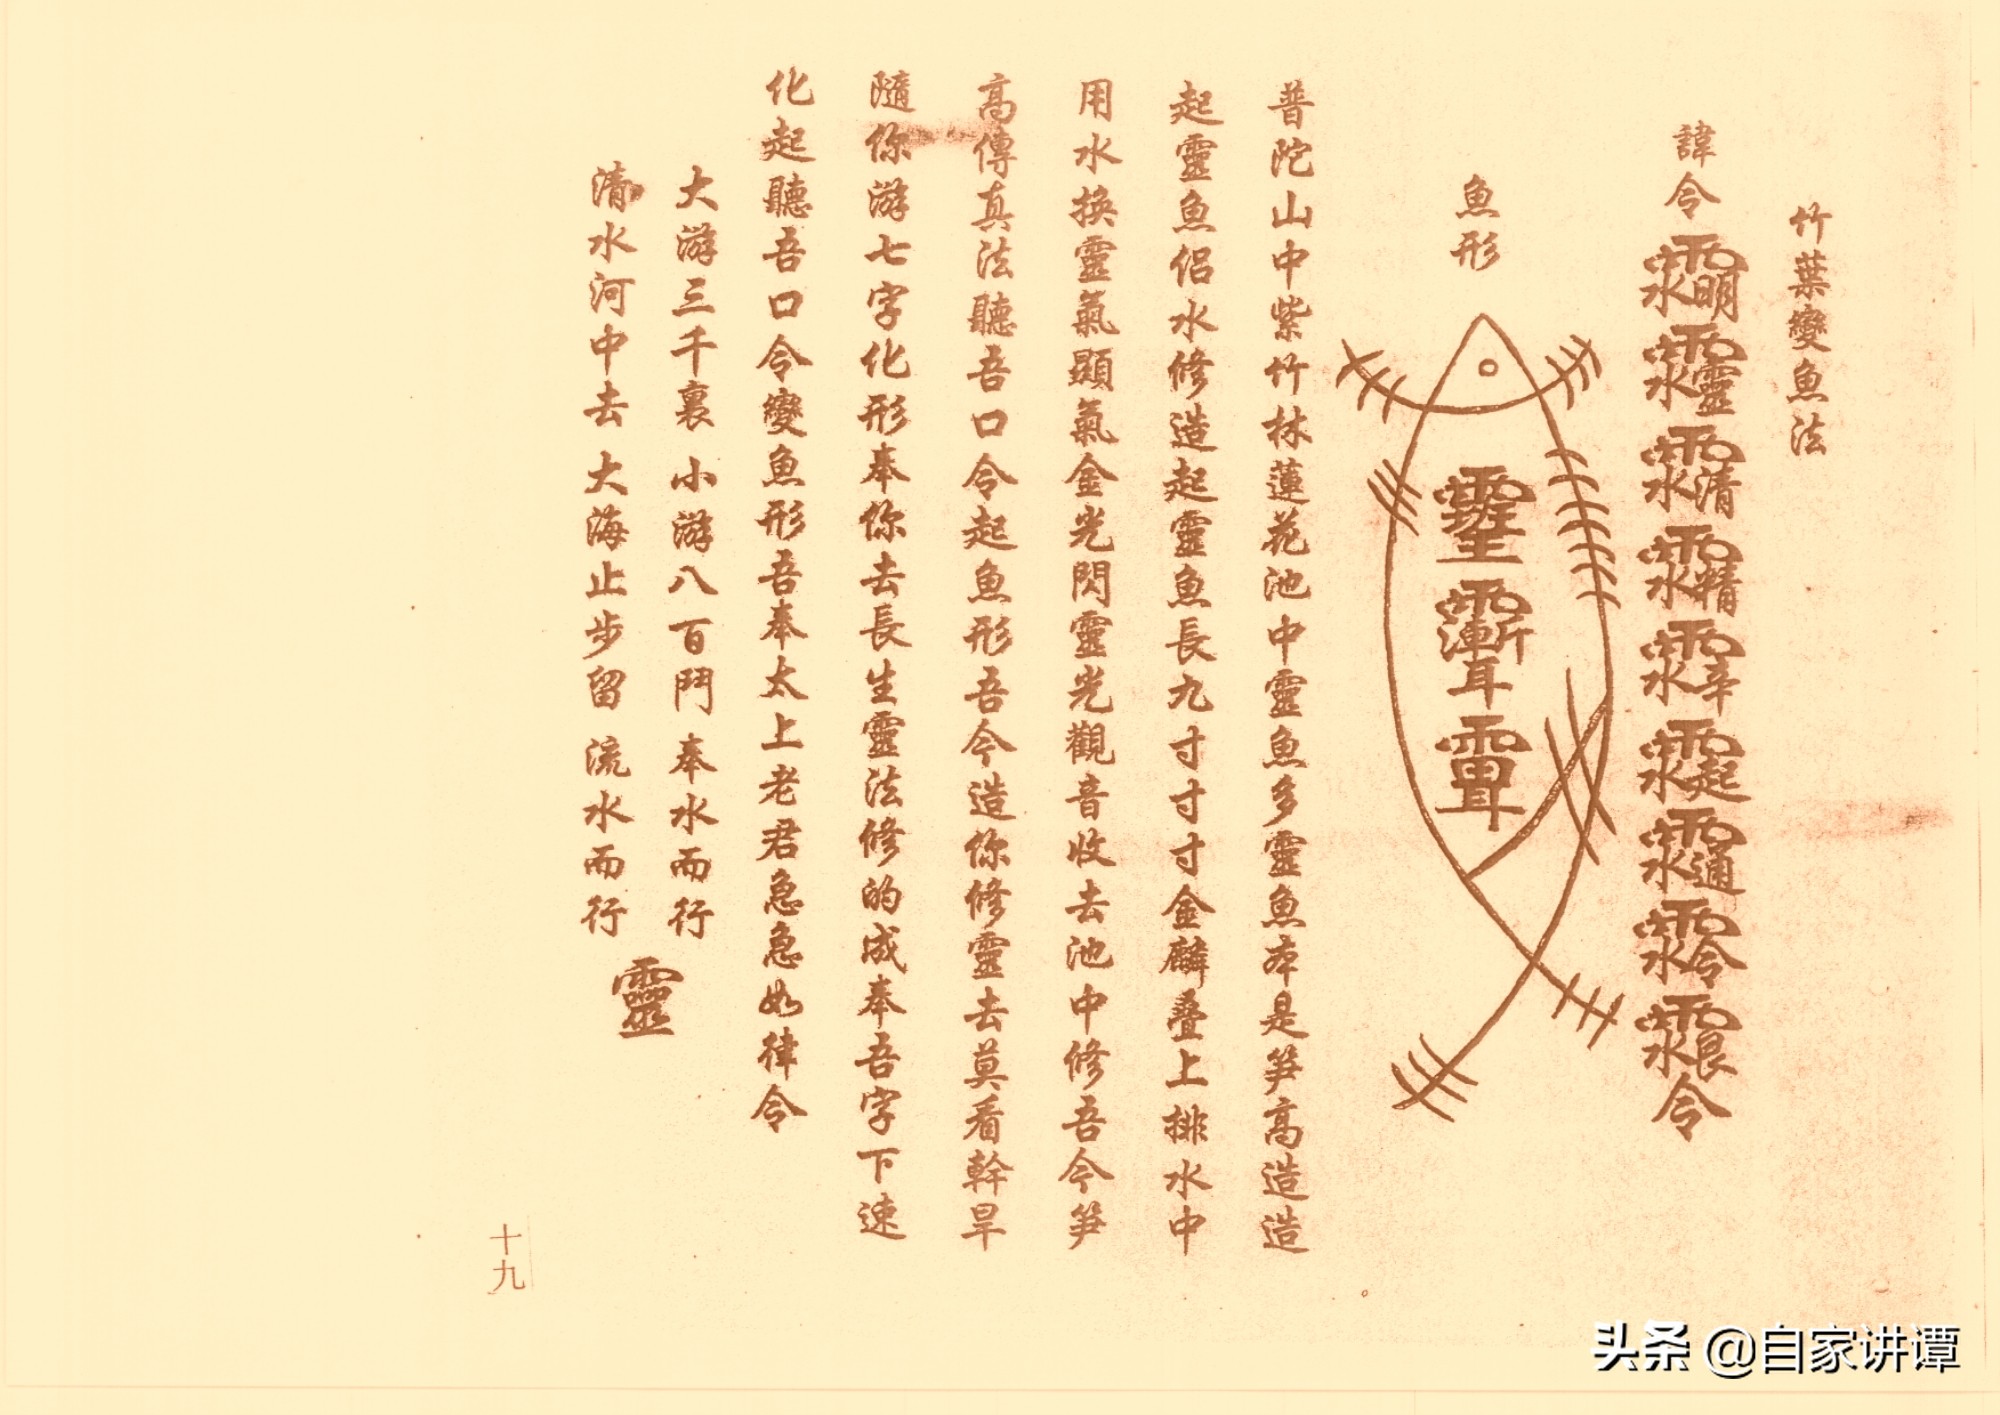 竹葉變魚法
諱令
令
魚形
普陀山中紫竹林蓮花池中靈魚多靈魚本是笋高造造
起靈魚侣水修造起靈魚長九寸寸寸金麟叠上排水中
用水換靈氣顯氣金光閃靈光觀音收去池中修吾今笋
高傳真法聽吾口令起魚形吾今造你修靈去莫看幹旱
隨你游七字化形奉你去長生靈法修的成奉吾字下速
化起聽吾口令變魚形吾奉太上老君急急如律令
大游三千裏 小游八百鬥 奉水而行
清水河中去 大海止步留 流水而行
靈
十九
头条 @自家讲谭